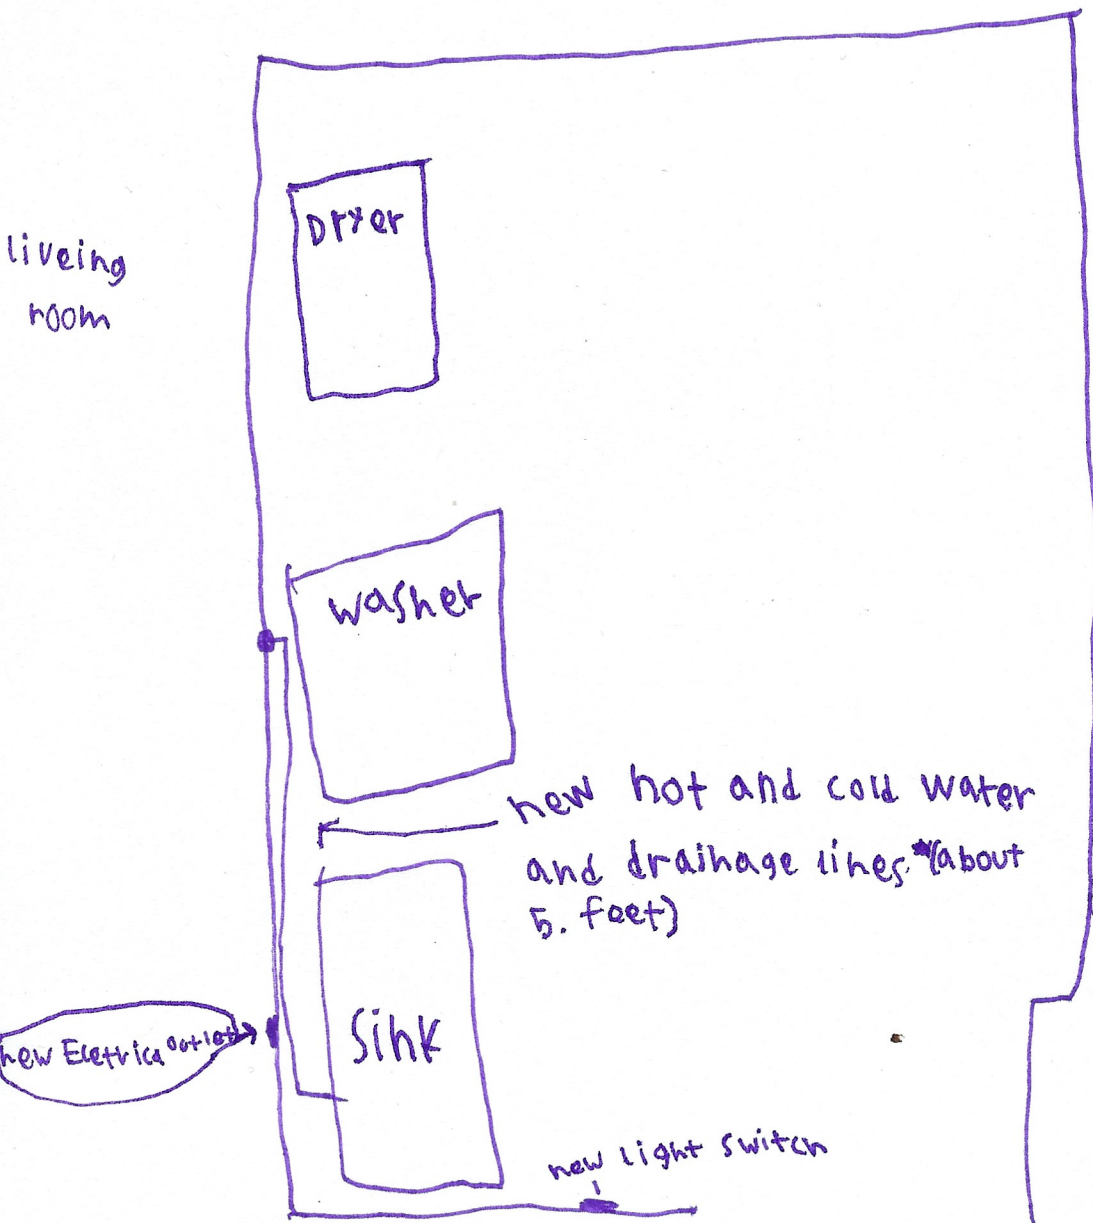 Dryer
liveing
room
washer
new hot and cold water
and drainage lines. (about
5. feet)
new Eletrica outlet
Sink
new light switch